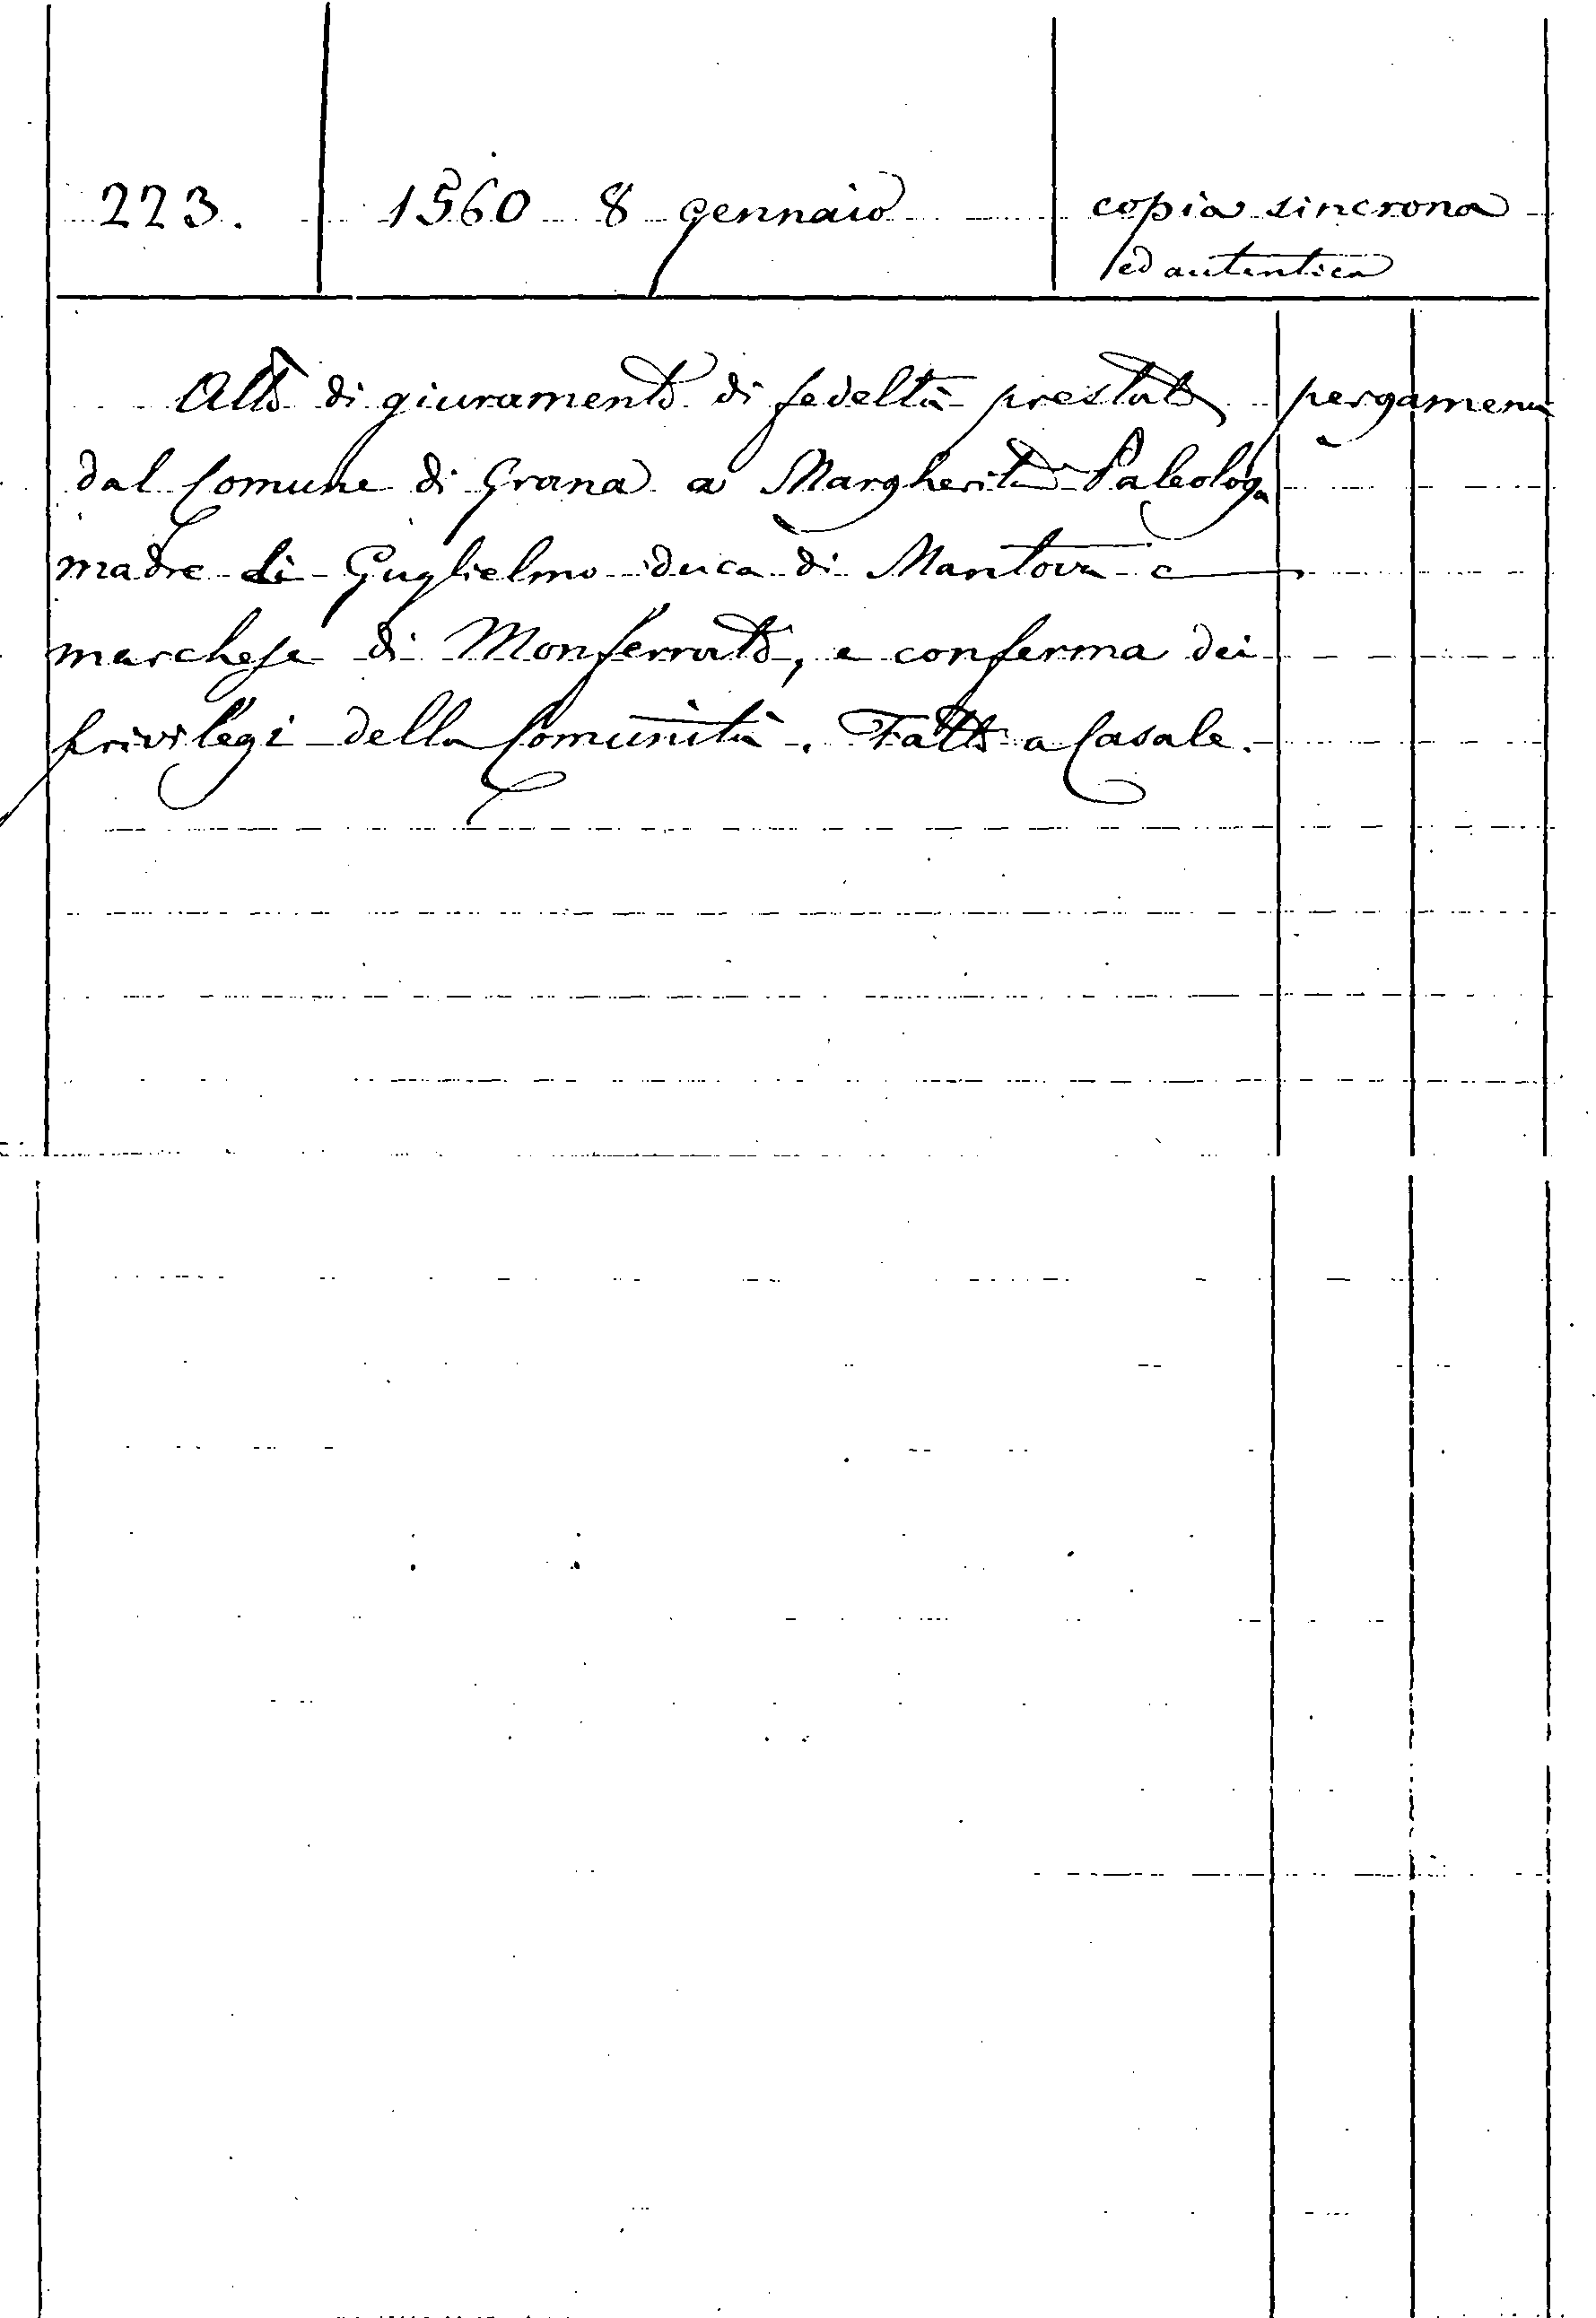 223. 1560 8 gennaio copia sincrona
ed autentica
Atto di giuramento di fedeltà prestato pergamena
dal Comune di Grana a Margherita Paleologa
madre di Guglielmo duca di Mantova e
marchese di Monferrato, e conferma dei
privilegi della Comunità. Fatto a Casale.